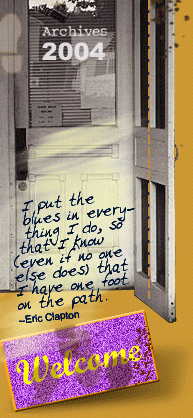 Archives
2004
I put the
blues in every-
thing I do, so
that I know
(even if no one
else does) that
I have one foot
on the path.
--Eric Clapton
Welcome